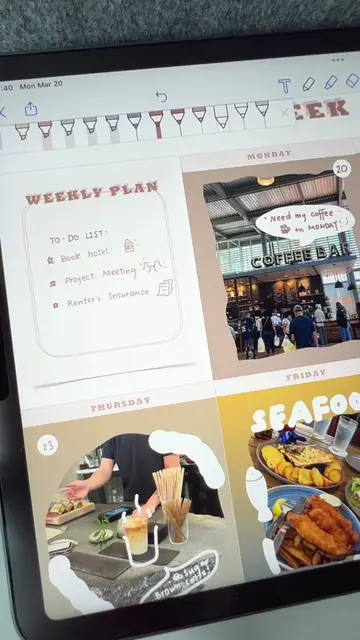 :40 Mon Mar 20
T
EEK
WEEKLY PLAN
TO-DO LIST:
Book hotel
Project Meeting
Renter's Insurance
MONDAY
20
"Need my coffee
on MONDAY"
COFFEE BAR
THURSDAY
23
Brown Coffee
FRIDAY
SEAFOO